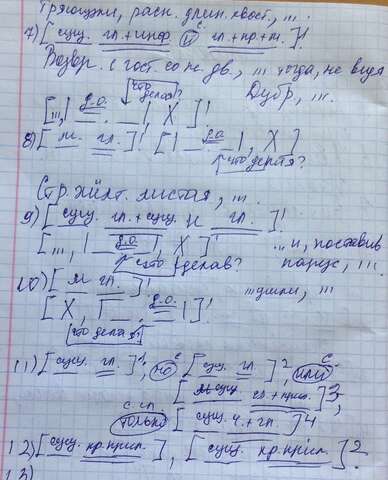 7) [сущ. гл.+инф. и гл.+пр+м.]!
Возвр. с гост. со не дв., ... тогда, не видя
что делая? дубр, ...
[...,| д.о. __|, X]!
8) [м. гл.]! [|__ д.о.|, X]
что делая?
Стр. листая, ...
9) [сущ. гл.+сущ. и гл.]!
[...,| д.о. |, X]! ...и, поставив
что сделав? парус, ...
10) [м гл.]!
[X, |__. д.о.|]!
что делая?
11) [сущ. гл.]1, но [сущ. гл.]2, или
[м сущ. гл.+прил.]3,
только [сущ. ч.+гл.]4
12) [сущ. кр.прил.], [сущ. кр.прил.]2.
13)